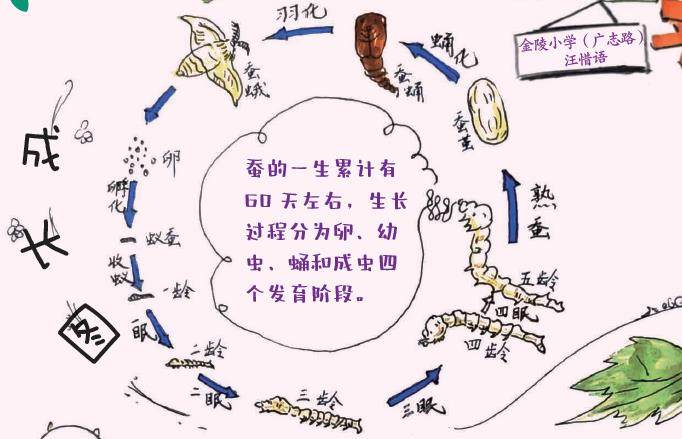 羽化
蛹化
金陵小学（广志路）
汪惜语
蚕蛾
蚕蛹
蚕茧
卵
孵化
蚁蚕
收蚁
一龄
一眠
二龄
二眠
三龄
三眠
四龄
四眠
五龄
熟蚕
成
长
蚕的一生累计有
60天左右，生长
过程分为卵、幼
虫、蛹和成虫四
个发育阶段。